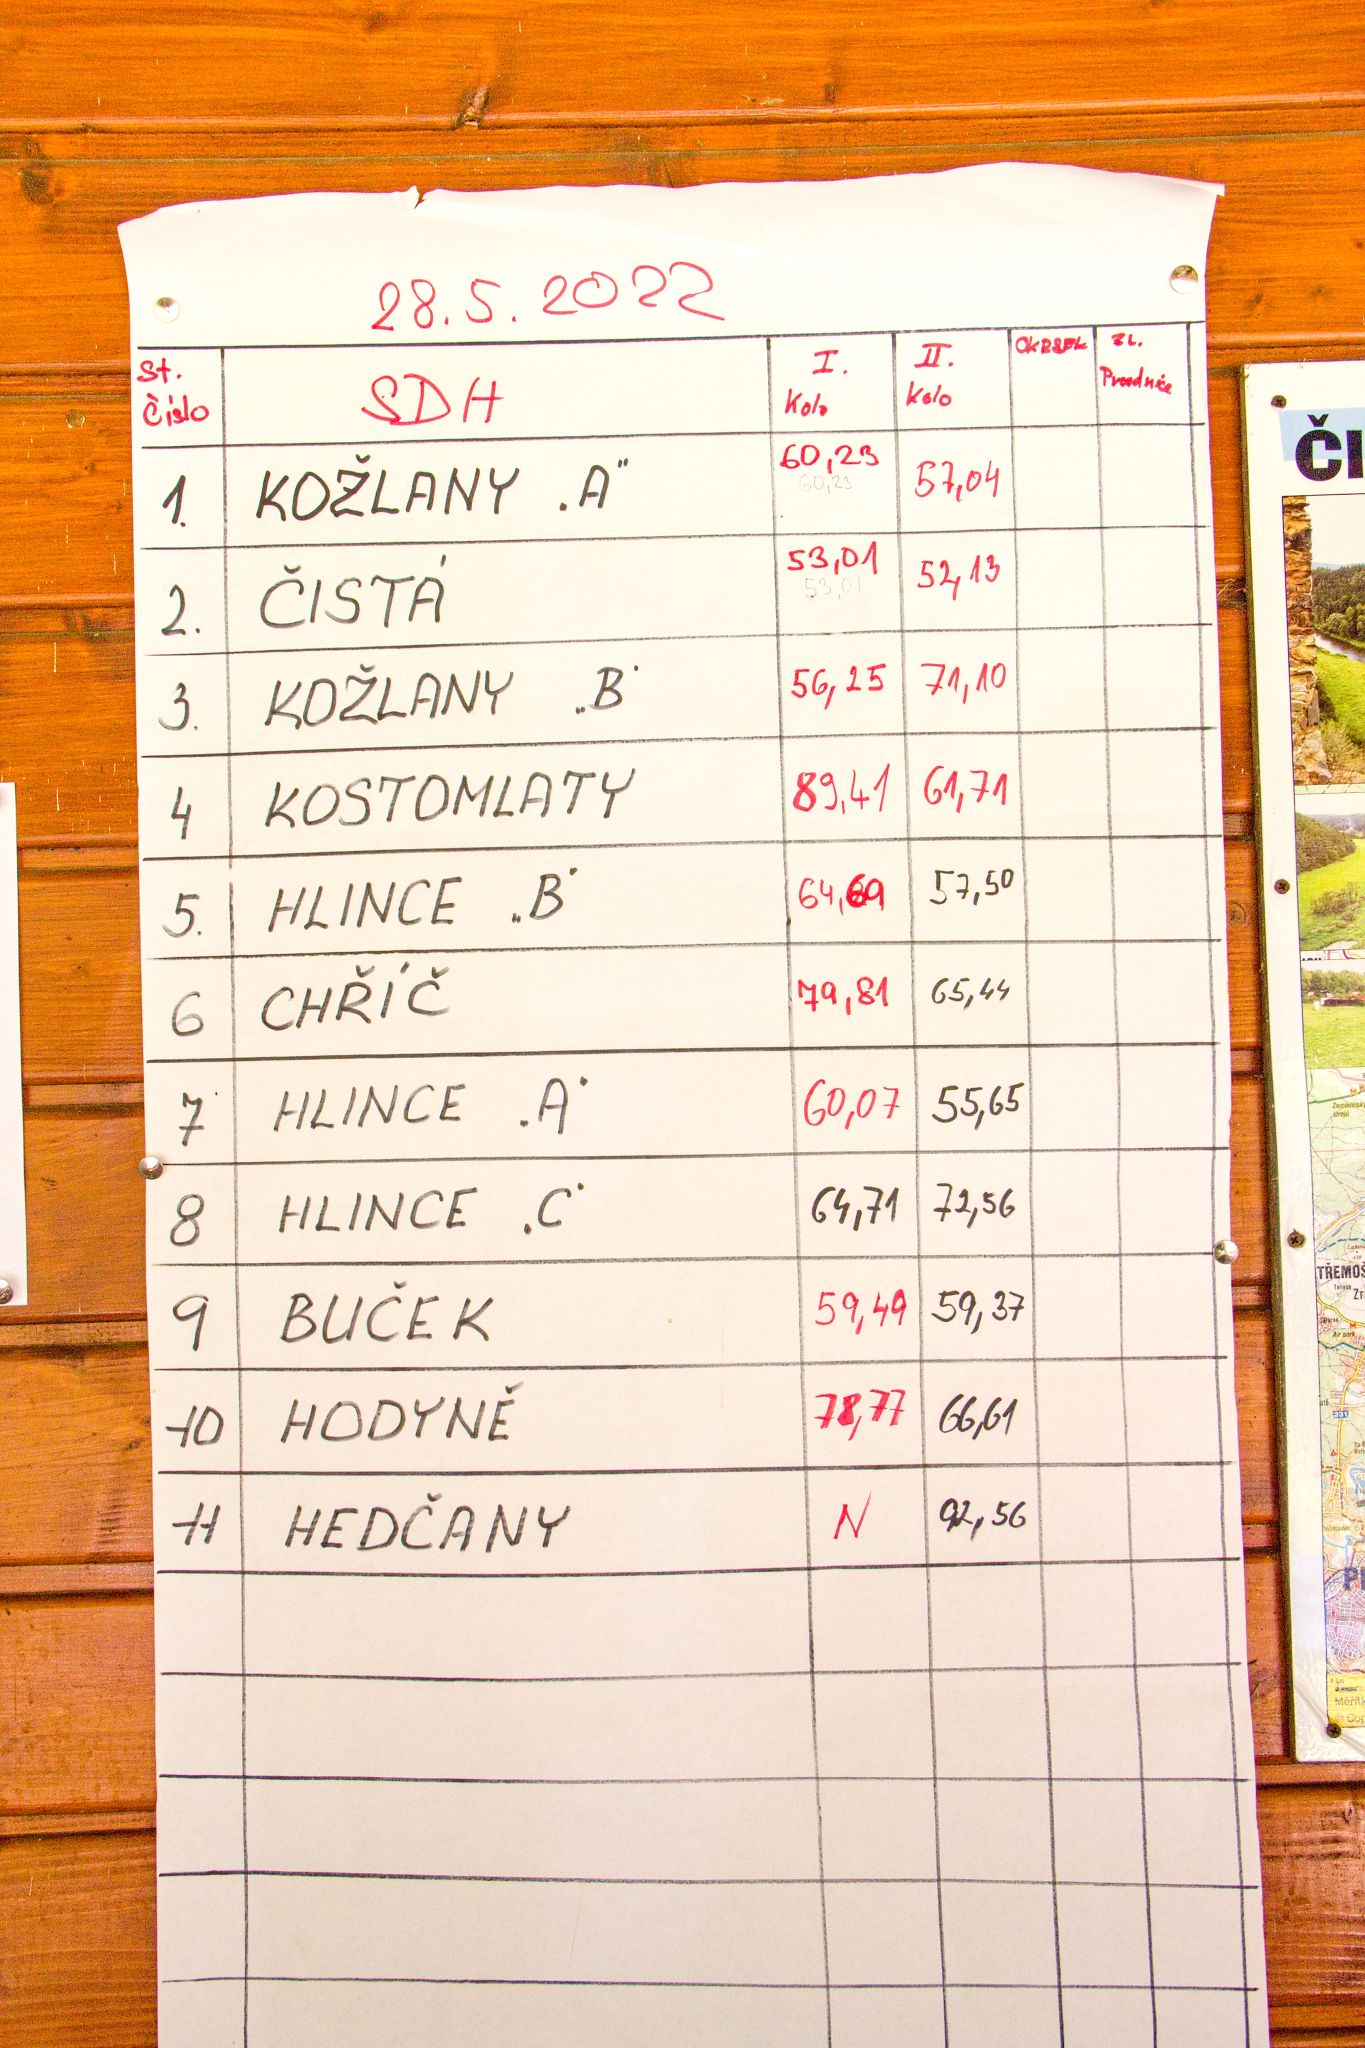 28.5.2022
St. Číslo SDH I. Kolo II. Kolo OKRSEK ZL. Proudnice
1. KOŽLANY "A" 60,23 57,04
60,23
2. ČISTÁ 53,01 52,13
53,01
3. KOŽLANY "B" 56,25 71,10
4 KOSTOMLATY 89,41 61,71
5. HLINCE "B" 64,69 57,50
6 CHŘÍČ 79,81 65,44
7 HLINCE "A" 60,07 55,65
8 HLINCE "C" 64,71 72,56
9 BUČEK 59,49 59,37
10 HODYNĚ 78,77 66,61
11 HEDČANY N 92,56
ČI
TŘEMOŠ